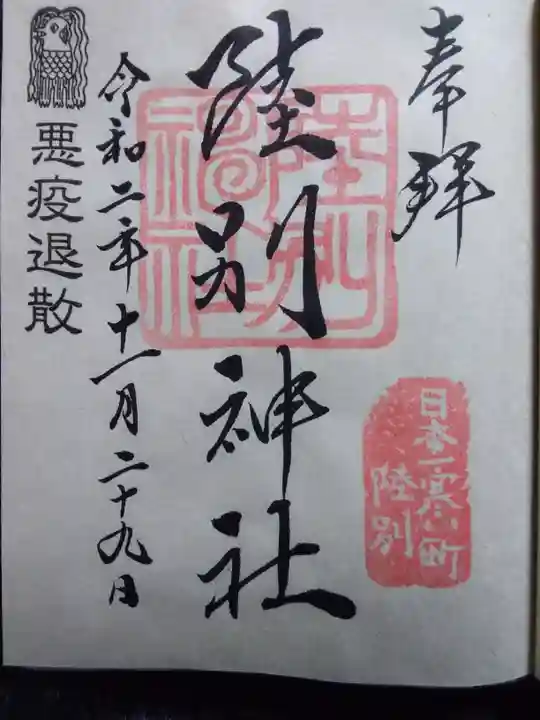 奉拜
日本一寒い町
陸別
陸別神社
陸別
神社
令和二年十一月二十九日
悪疫退散